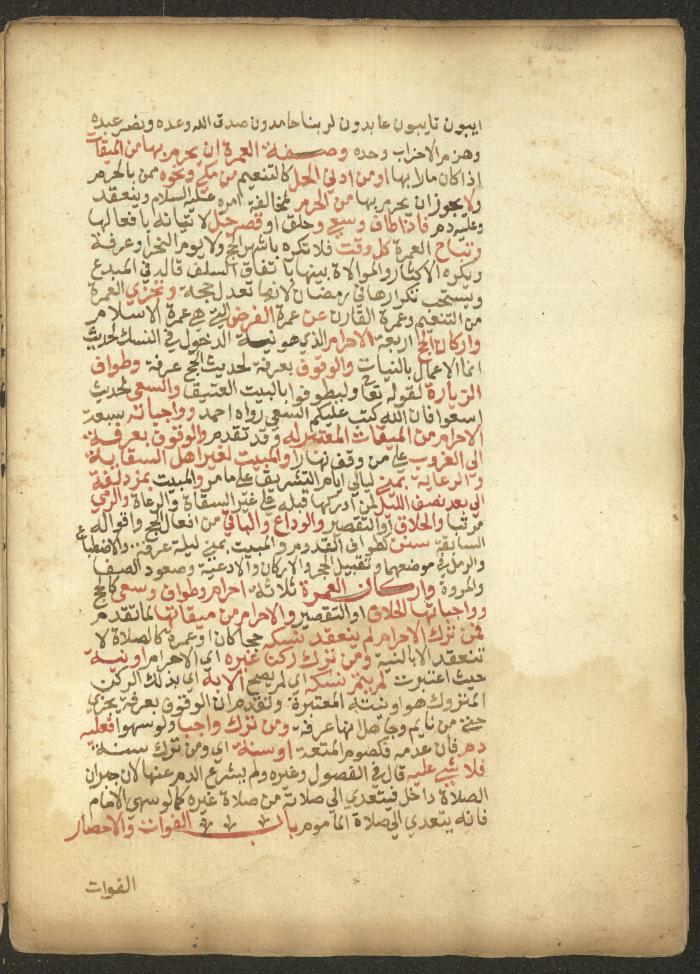 ايبون تايبون عابدون لربنا حامدون صدق الله وعده ونصر عبده
وهزم الاحزاب وحده وصفة العمرة ان يحرم بها من الميقات
اذا كان مارا بها او من ادني الحل كالتنعيم من مكي ونحوه ممن بالحرم
ولا يجوز ان يحرم بها من الحرم لمخالفة امره عليه السلام وينعقد
وعليه دم فاذا طاف وسعي وحلق او قصر حل لاتيانه بافعالها
وتباح العمرة كل وقت فلا تكره باشهر الحج ولا يوم النحر او عرفة
ويكره الاكثار والموالاة بينها باتفاق السلف قاله في المبدع
ويستحب تكرارها في رمضان لانها تعدل حجة وتجزي العمرة
من التنعيم وعمرة القارن عن عمرة الفرض التي هي عمرة الاسلام
واركان الحج اربعة الاحرام الذي هو نية الدخول في النسك لحديث
انما الاعمال بالنيات والوقوف بعرفة لحديث الحج عرفة وطواف
الزيارة لقوله تعالى وليطوفوا بالبيت العتيق والسعي لحديث
اسعوا فان الله كتب عليكم السعي رواه احمد وواجباته سبعة
الاحرام من الميقات المعتبر له وقد تقدم والوقوف بعرفة
الى الغروب على من وقف نهارا والمبيت لغير اهل السقاية
والرعاية بمني ليالي ايام التشريق على ما مر والمبيت بمزدلفة
الى بعد نصف الليل لمن ادركها قبله على غير السقاة والرعاة والرمي
مرتبا والحلاق او التقصير والوداع والباقي من افعال الحج واقواله
السابقة سنن كطواف القدوم والمبيت بمني ليلة عرفة والاضطباع
والرمل في موضعهما وتقبيل الحجر والاركان والادعية وصعود الصفا
والمروة واركان العمرة ثلاثة احرام وطواف وسعي كالحج
وواجباتها الحلاق او التقصير والاحرام من ميقاتها لما تقدم
فمن ترك الاحرام لم ينعقد نسكه حجا كان او عمرة كالصلاة لا
تنعقد الا بالنية ومن ترك ركنا غيره اي الاحرام او نيته
حيث اعتبرت لم يتم نسكه اي لم يصح الا به اي بذلك الركن
المتروك هو او نيته المعتبرة وتقدم ان الوقوف بعرفة يجزي
حتي من نايم وجاهل انها عرفة ومن ترك واجبا ولو سهوا فعليه
دم فان عدمه فكصوم المتعة او سنة اي ومن ترك سنة
فلا شيء عليه قال في الفصول وغيره ولم يشرع الدم عنها لان جبران
الصلاة داخل فيتعدي الى صلاته من صلاة غيره كما لو سهي الامام
فانه يتعدي الى صلاة الماموم باب الفوات والاحصار
الفوات